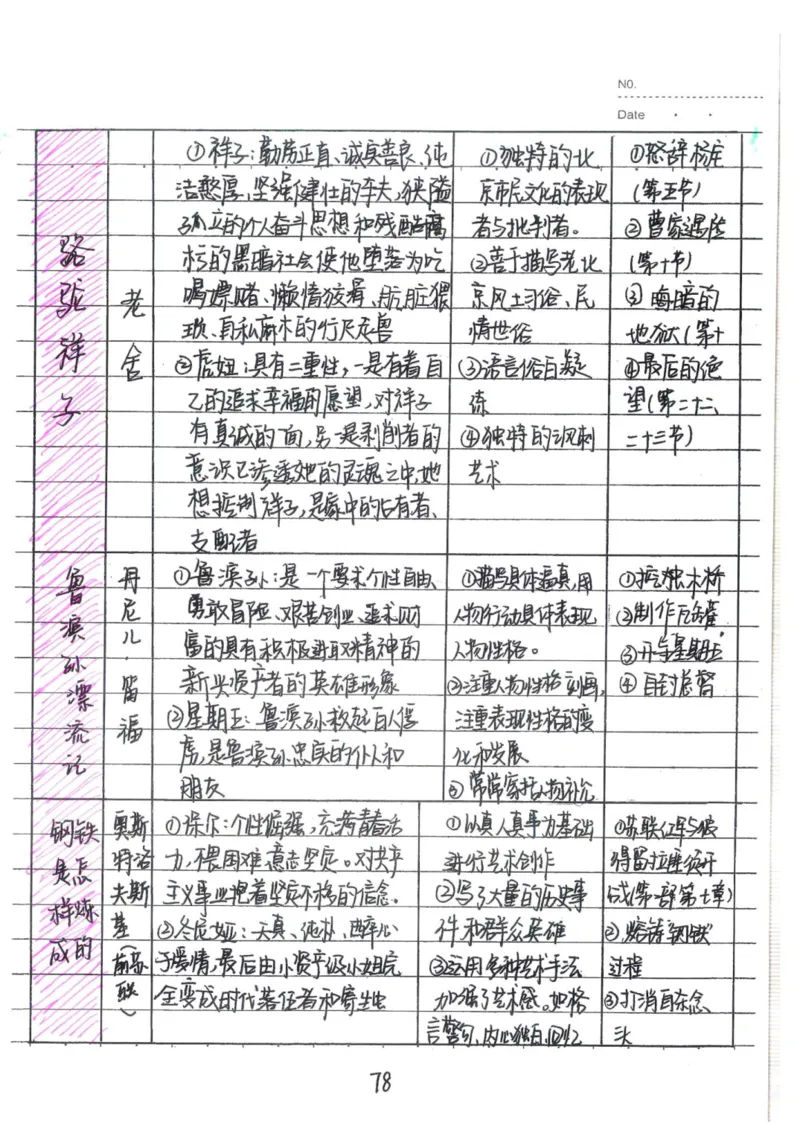 NO.
Date
骆驼祥子
老舍
①祥子:勤劳正直、诚真善良、纯
洁憨厚,坚强健壮的车夫,狭隘
孤立的个人奋斗思想和残酷腐
朽的黑暗社会使他堕落为吃
喝嫖赌、懒惰狡猾、肮脏猥
琐、自私麻木的行尸走兽
②虎妞:具有二重性,一是有着自
己的追求幸福的愿望,对祥子
有真诚的一面,另一是剥削者的
意识已渗透她的灵魂之中,她
想控制祥子,是家中的占有者、
支配者
①独特的北
京市民文化的表现
者与批判者。
②善于描写老北
京风土习俗、民
情世俗
③语言俗白凝
练
④独特的讽刺
艺术
①怒辞杨宅
(第五节)
②曹家遇险
(第十节)
③ 晦暗的
地狱(第十
④最后的绝
望(第二十二、
二十三节)
鲁滨孙漂流记
丹尼儿·笛福
①鲁滨孙:是一个要求个性自由、
勇敢冒险、艰苦创业、追求财
富的具有积极进取精神的
新兴资产者的英雄形象
②星期五:鲁滨孙救起的人俘
虏,是鲁滨孙忠实的仆人和
朋友
①描写具体逼真,用
人物行动具体表现
人物性格。
②注重人物性格刻画,
注重表现性格的变
化和发展
③常常
①挖独木桥
②制作瓦罐
③
④
钢铁是怎样炼成的
奥斯特洛夫斯基(前苏联)
①保尔:个性倔强,充满青春活
力,不畏困难,意志坚质。对共产
主义事业抱着坚定不移的信念。
②冬尼娅:天真、纯朴、醉心
于爱情,最后由小资产级小姐完
全变成时代落伍者和寄生虫
①以真人真事为基础
进行艺术创作
②写了大量的历史事
件和群众英雄
③运用多种艺术手法
加强了艺术感。如格
言警句,内心独白,回忆
①苏联红军与彼
得留拉匪徒开
战(第一部第七章)
②熔铸钢铁
过程
③打消自杀念
头
78